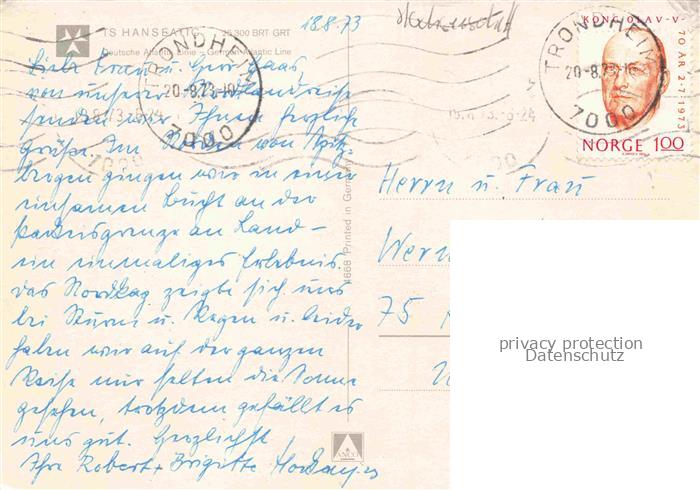 18.8.73
TS HANSEATIC 25 300 BRT GRT
Deutsche Atlantik Linie - German Atlantic Line
Liebe Frau u. Herr
von unserer Nordlandreise
senden wir Ihnen herzliche
Grüße. Im Norden von Spitz-
bergen gingen wir in einer
einsamen Bucht an der
Packeisgrenze an Land –
ein einmaliges Erlebnis.
Das Nordkap zeigte sich uns
bei Sturm u. Regen u. leider
haben wir auf der ganzen
Reise nur selten die Sonne
gesehen, trotzdem gefällt es
uns gut. Herzlichst
Ihre Robert + Brigitte
4668 Printed in Germany
ANCO
KONG OLAV · V
70 ÅR 2·7·1973
NORGE 100
TRONDHEIM
20-8.73-16
7000
TRONDHEIM
20-8.73-10
7000
Herrn u. Frau
Wern
75
privacy protection
Datenschutz